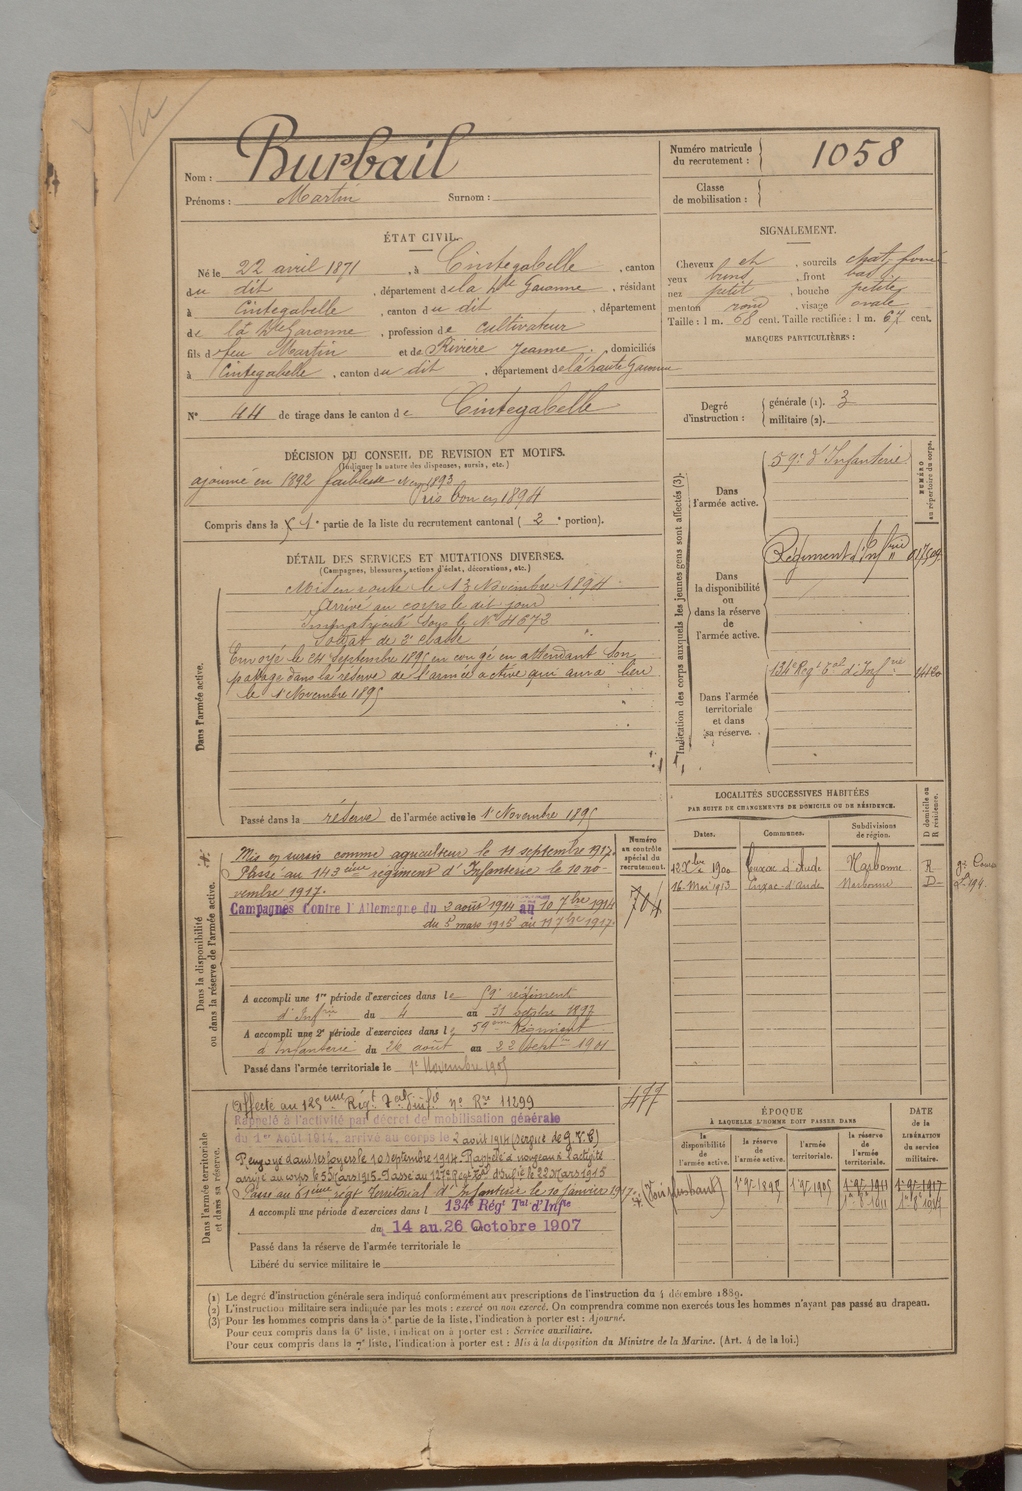 Vu
Nom : Burbail
Prénoms : Martin Surnom :
Numéro matricule
du recrutement : 1058
Classe
de mobilisation :
ÉTAT CIVIL.
Né le 22 avril 1871, à Cintegabelle, canton
du dit, département de la Hte Garonne, résidant
à Cintegabelle, canton du dit, département
de la Hte Garonne, profession de cultivateur
fils de feu Martin et de Rivière Jeanne, domiciliés
à Cintegabelle, canton du dit, département de la haute Garonne
N° 44 de tirage dans le canton de Cintegabelle
SIGNALEMENT.
Cheveux et, sourcils chat. foncé
yeux bruns, front bas
nez petit, bouche petite
menton rond, visage ovale
Taille : 1 m. 68 cent. Taille rectifiée : 1 m. 67 cent.
MARQUES PARTICULIÈRES :
Degré
d'instruction :
générale (1). 3
militaire (2).
DÉCISION DU CONSEIL DE REVISION ET MOTIFS.
(Indiquer la nature des dispenses, sursis, etc.)
ajourné en 1892 faiblesse 1893
Pris bon en 1894
Compris dans la 1e partie de la liste du recrutement cantonal (2e portion).
DÉTAIL DES SERVICES ET MUTATIONS DIVERSES.
(Campagnes, blessures, actions d'éclat, décorations, etc.)
Dans l'armée active.
Mis en route le 13 Novembre 1894
Arrivé au corps le dit jour
Immatriculé sous le N° 4672
Soldat de 2e classe
Envoyé le 24 septembre 1895 en congé en attendant son
passage dans la réserve de l'armée active qui aura lieu
le 1er Novembre 1895
Passé dans la réserve de l'armée active le 1er Novembre 1895
Indication des corps auxquels les jeunes gens sont affectés (3).
NUMÉRO
au répertoire du corps.
Dans
l'armée active.
59e d'Infanterie
Dans
la disponibilité
ou
dans la réserve
de
l'armée active.
Régiment d'infrie
Dans l'armée
territoriale
et dans
sa réserve.
134e Régt Tal d'Infrie
Dans la disponibilité
ou dans la réserve de l'armée active.
Numéro
au contrôle
spécial du
recrutement.
704
Mis en sursis comme agriculteur le 11 septembre 1917.
Passé au 143ème régiment d'Infanterie le 10 no-
vembre 1917.
Campagnes Contre l'Allemagne du 2 août 1914 au 10 7bre 1914
du 5 mars 1915 au 11 7bre 1917.
A accompli une 1re période d'exercices dans le 59e régiment
d'Infrie du 4 au 31 octobre 1897
A accompli une 2e période d'exercices dans le 59eme Régiment
d'Infanterie du 26 août au 22 Septre 1901
Passé dans l'armée territoriale le 1er Novembre 1905
LOCALITÉS SUCCESSIVES HABITÉES
PAR SUITE DE CHANGEMENTS DE DOMICILE OU DE RÉSIDENCE.
Dates. Communes. Subdivisions
de région. D domicile ou
R résidence.
12 Xbre 1900 Cuxac d'Aude Narbonne R
16 Mai 1913 Cuxac-d'Aude Narbonne D
Dans l'armée territoriale
et dans sa réserve.
477
Affecté au 125eme Régt Tal d'infie no Rre 11299
Rappelé à l'activité par décret de mobilisation générale
du 1er Août 1914, arrivé au corps le 2 août 1914 (service de G.V.C)
Renvoyé dans ses foyers le 10 septembre 1914. Rappelé à nouveau à l'activité
arrivé au corps le 5 Mars 1915. Passé au 127e Régt Tal d'Infie le 22 Mars 1915
Passé au 61ème régt Territorial d'Infanterie le 10 janvier 1917.
A accompli une période d'exercices dans l 134e Régt Tal d'Infie
du 14 au 26 Octobre 1907
Passé dans la réserve de l'armée territoriale le
Libéré du service militaire le
ÉPOQUE
À LAQUELLE L'HOMME DOIT PASSER DANS
DATE
de la
LIBÉRATION
du service
militaire.
la
disponibilité
de
l'armée active.
la réserve
de
l'armée active.
l'armée
territoriale.
la réserve
de
l'armée
territoriale.
(Voir plus haut) 1er 9bre 1895 1er 9bre 1905 1er 9bre 1911 1er 9bre 1917
(1) Le degré d'instruction générale sera indiqué conformément aux prescriptions de l'instruction du 4 décembre 1889.
(2) L'instruction militaire sera indiquée par les mots : exercé ou non exercé. On comprendra comme non exercés tous les hommes n'ayant pas passé au drapeau.
(3) Pour les hommes compris dans la 5e partie de la liste, l'indication à porter est : Ajourné.
Pour ceux compris dans la 6e liste, l'indication à porter est : Service auxiliaire.
Pour ceux compris dans la 7e liste, l'indication à porter est : Mis à la disposition du Ministre de la Marine. (Art. 4 de la loi.)